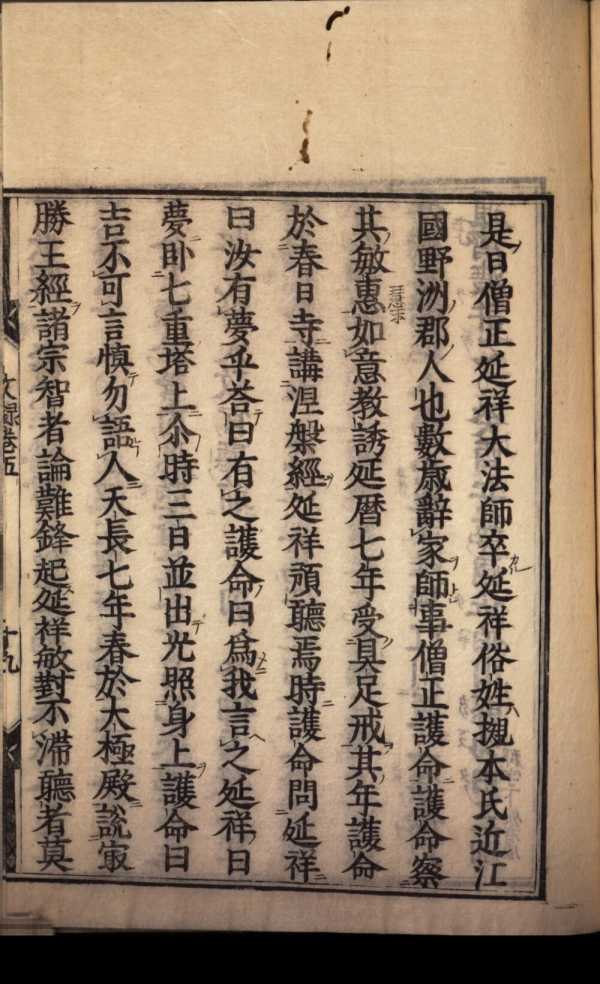 是日僧正延祥大法師卒延祥俗姓槻本氏近江
國野洲郡人也數歳辭家師事僧正護命護命察
其敏惠如意教誘延暦七年受具足戒其年護命
於春日寺講涅槃經延祥預聽焉時護命問延祥
曰汝有夢乎荅曰有之護命曰爲我言之延祥曰
夢卧七重塔上尒時三日並出光照身上護命曰
吉不可言慎勿語人天長七年春於大極殿説㝡
勝王經諸宗智者論難鋒起延祥敏對不滯聽者莫
文録卷五
十九